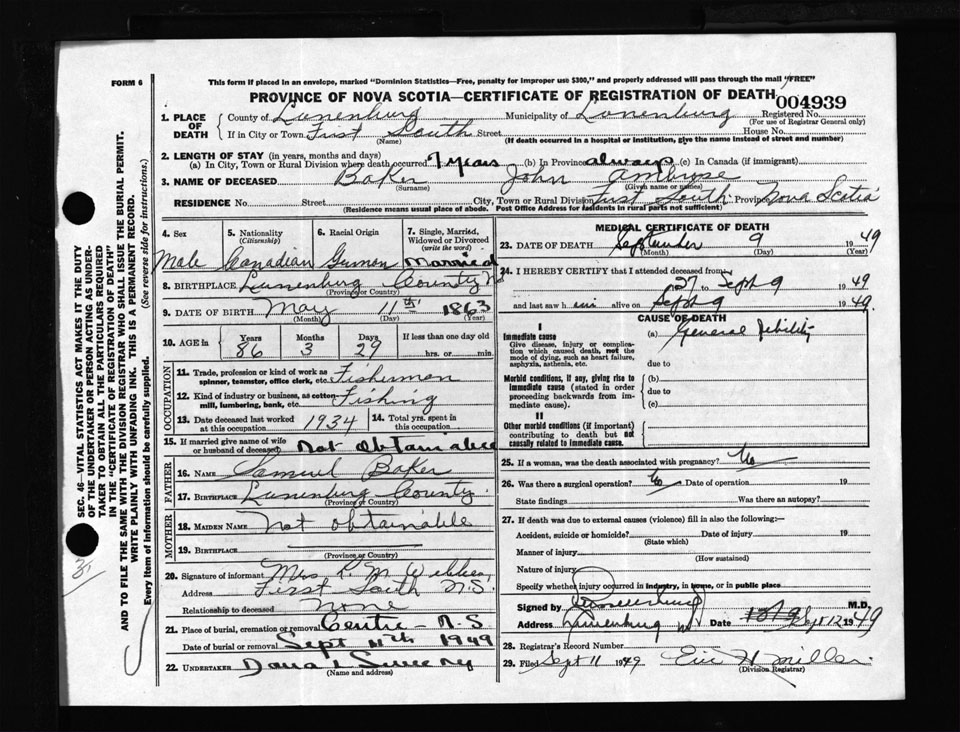 FORM 6
This form if placed in an envelope, marked "Dominion Statistics—Free, penalty for improper use $300," and properly addressed will pass through the mail "FREE"
PROVINCE OF NOVA SCOTIA—CERTIFICATE OF REGISTRATION OF DEATH 004939
1. PLACE OF DEATH
County of Lunenburg Municipality of Lunenburg Registered No.
(For use of Registrar General only)
If in City or Town First South Street House No.
(Name) (If death occurred in a hospital or institution, give the name instead of street and number)
2. LENGTH OF STAY (in years, months and days)
(a) In City, Town or Rural Division where death occurred 7 years (b) In Province always (c) In Canada (if immigrant)
3. NAME OF DECEASED Baker John Ambrose
(Surname) (Given name or names)
RESIDENCE No. Street City, Town or Rural Division First South Province Nova Scotia
(Residence means usual place of abode. Post Office Address for residents in rural parts not sufficient)
4. Sex 5. Nationality (Citizenship) 6. Racial Origin 7. Single, Married, Widowed or Divorced (write the word)
Male Canadian German Married
8. BIRTHPLACE Lunenburg County N
(Province or Country)
9. DATE OF BIRTH May 11th 1863
(Month) (Day) (Year)
10. AGE in Years Months Days If less than one day old
86 3 29 hrs. or min.
OCCUPATION
11. Trade, profession or kind of work as spinner, teamster, office clerk, etc. Fisherman
12. Kind of industry or business, as cotton mill, lumbering, bank, etc. Fishing
13. Date deceased last worked at this occupation 1934 14. Total yrs. spent in this occupation
15. If married give name of wife or husband of deceased Not Obtainable
FATHER
16. NAME Samuel Baker
17. BIRTHPLACE Lunenburg County.
(Province or Country)
MOTHER
18. MAIDEN NAME Not obtainable
19. BIRTHPLACE
(Province or Country)
20. Signature of informant Mrs R. M
Address First South N.S.
Relationship to deceased None
21. Place of burial, cremation or removal Centre - N-S
Date of burial or removal Sept 11th 1949
22. UNDERTAKER Dana L Sweeny
(Name and address)
MEDICAL CERTIFICATE OF DEATH
23. DATE OF DEATH September 9 1949
(Month) (Day) (Year)
24. I HEREBY CERTIFY that I attended deceased from
127 to Sept 9 1949
and last saw him alive on Sept 9 1949.
CAUSE OF DEATH
I
Immediate cause (a) General debility
Give disease, injury or complication which caused death, not the mode of dying, such as heart failure, asphyxia, asthenia, etc.
due to
Morbid conditions, if any, giving rise to immediate cause (stated in order proceeding backwards from immediate cause).
(b)
due to
(c)
II
Other morbid conditions (if important) contributing to death but not causally related to immediate cause.
25. If a woman, was the death associated with pregnancy? No
26. Was there a surgical operation? No Date of operation 19
State findings Was there an autopsy?
27. If death was due to external causes (violence) fill in also the following:—
Accident, suicide or homicide? Date of injury 19
(State which)
Manner of injury
(How sustained)
Nature of injury
Specify whether injury occurred in industry, in home, or in public place
Signed by M.D.
Address Lunenburg Date Sept 12 1949
28. Registrar's Record Number
29. Filed Sept 11 1949 Eric H. Miller.
(Division Registrar)
SEC. 46—VITAL STATISTICS ACT MAKES IT THE DUTY
OF THE UNDERTAKER OR PERSON ACTING AS UNDER-
TAKER TO OBTAIN ALL THE PARTICULARS REQUIRED
IN THE "CERTIFICATE OF REGISTRATION OF DEATH"
AND TO FILE THE SAME WITH THE DIVISION REGISTRAR WHO SHALL ISSUE THE BURIAL PERMIT.
WRITE PLAINLY WITH UNFADING INK. THIS IS A PERMANENT RECORD.
Every item of Information should be carefully supplied. (See reverse side for instructions.)